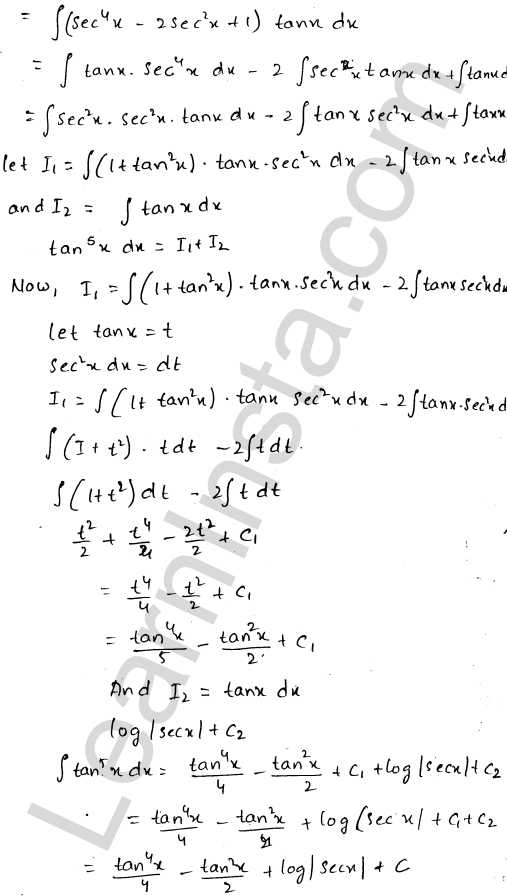 = ∫(sec⁴x - 2sec²x + 1) tanx dx
= ∫ tanx. sec⁴x dx - 2 ∫sec²x tanx dx + ∫tanx d
= ∫sec²x. sec²x. tanx dx - 2∫tanx sec²x dx + ∫tanx
let I₁ = ∫(1+tan²x). tanx. sec²x dx - 2∫tanx sec²xd
and I₂ = ∫ tanx dx
tan⁵x dx = I₁ + I₂
Now, I₁ = ∫(1+tan²x). tanx. sec²x dx - 2∫tanx sec²x dx
let tanx = t
sec²x dx = dt
I₁ = ∫(1+ tan²x). tanx sec²x dx - 2∫tanx. sec²x d
∫(I + t²). t dt - 2∫t dt.
∫(1+t²) dt - 2∫t dt
t²/2 + t⁴/4 - 2t²/2 + C₁
= t⁴/4 - t²/2 + C₁
= tan⁴x/5 - tan²x/2 + C₁
And I₂ = tanx dx
log|secx| + C₂
∫tan⁵x dx = tan⁴x/4 - tan²x/2 + C₁ + log|secx| + C₂
= tan⁴x/4 - tan²x/2 + log(sec x| + C₁ + C₂
= tan⁴x/4 - tan²x/2 + log|secx| + C
LearnInsta.com